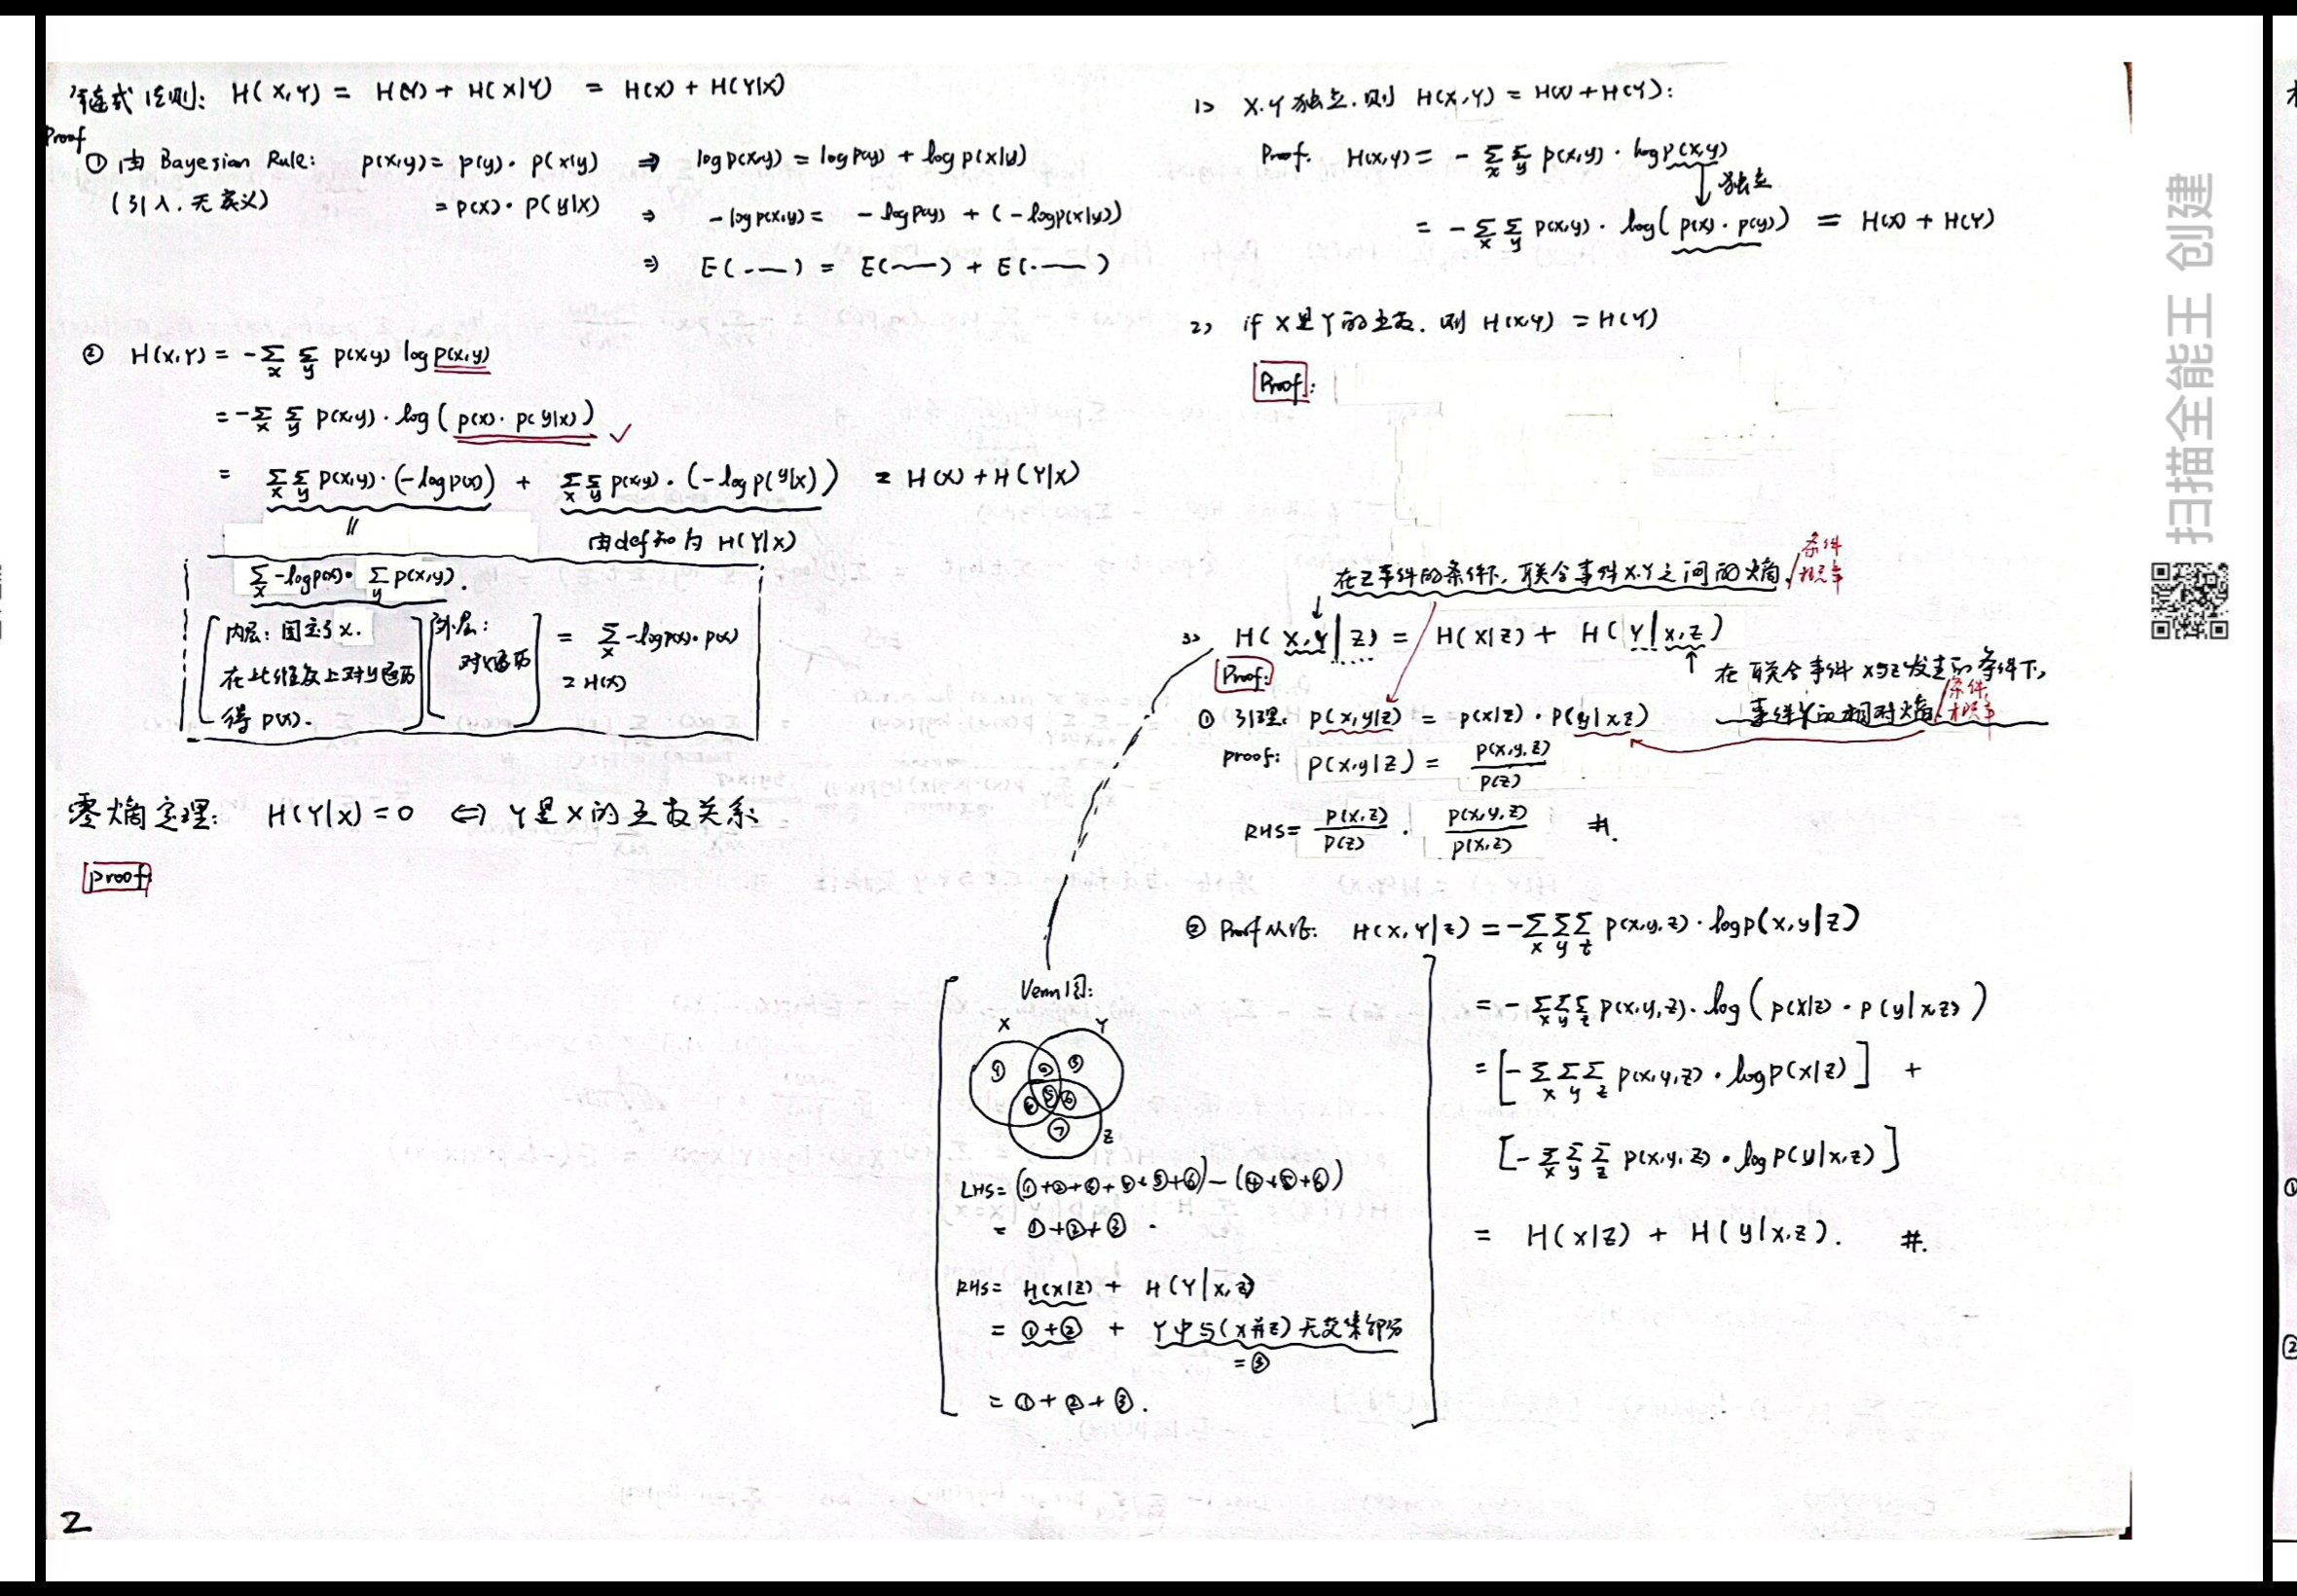 链式法则: H(X,Y) = H(Y) + H(X|Y) = H(X) + H(Y|X)
Proof
① 由 Bayesian Rule: p(x,y) = p(y)·p(x|y) ⇒ log p(x,y) = log p(y) + log p(x|y)
(引入, 无意义) = p(x)·p(y|x) ⇒ -log p(x,y) = -log p(y) + (-log p(x|y))
⇒ E(·—) = E(—) + E(·—)
② H(X,Y) = -∑x ∑y p(x,y) log p(x,y)
= -∑x ∑y p(x,y)·log( p(x)·p(y|x) ) ✓
= ∑x ∑y p(x,y)·(-log p(x)) + ∑x ∑y p(x,y)·(-log p(y|x)) = H(X) + H(Y|X)
由def知为 H(Y|X)
∑x -log p(x)· ∑y p(x,y).
[内层: 固定x.
在此维度上对y遍历
得 p(x).]
[外层:
对x遍历]
= ∑x -log p(x)·p(x)
= H(X)
零熵定理: H(Y|X) = 0 ⇔ Y是X的主友关系
proof
2
1> X.Y 独立. 则 H(X,Y) = H(X) + H(Y):
Proof. H(X,Y) = -∑x ∑y p(x,y)·log p(x,y)
↓ 独立
= -∑x ∑y p(x,y)·log( p(x)·p(y) ) = H(X) + H(Y)
2> if X是Y的主友. 则 H(X,Y) = H(Y)
Proof:
在Z事件的条件下, 联合事件X.Y之间的熵. /条件概率
3> H(X,Y|Z) = H(X|Z) + H(Y|X,Z)
↑ 在联合事件X与Z发生的条件下,
事件Y的相对熵. /条件概率
Proof:
① 引理: p(x,y|z) = p(x|z)·p(y|xz)
proof: p(x,y|z) = p(x,y,z) / p(z)
RHS = p(x,z)/p(z) · p(x,y,z)/p(x,z) #.
② Proof : H(X,Y|Z) = -∑x ∑y ∑z p(x,y,z)·log p(x,y|z)
= -∑x ∑y ∑z p(x,y,z)·log( p(x|z)·p(y|x,z) )
= [-∑x ∑y ∑z p(x,y,z)·log p(x|z)] +
[-∑x ∑y ∑z p(x,y,z)·log p(y|x,z)]
= H(X|Z) + H(y|x,z). #.
Venn图:
X Y
① ② ③
④ ⑤ ⑥
⑦ Z
LHS = (①+②+③+④+⑤+⑥) - (④+⑤+⑥)
= ①+②+③.
RHS = H(X|Z) + H(Y|X,Z)
= ①+② + Y中与(X并Z)无交集部分
= ③
= ①+②+③.
扫描全能王 创建
①
②